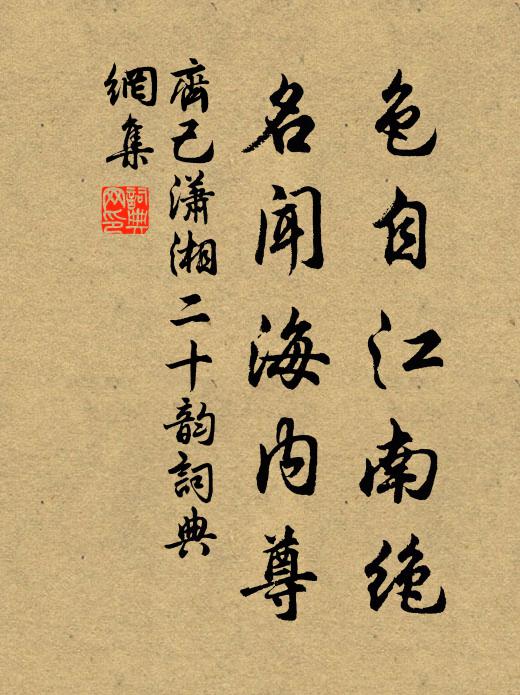 色自江南绝
名闻海内尊
齊己瀟湘二十韵詞典
網集
詞典
网印